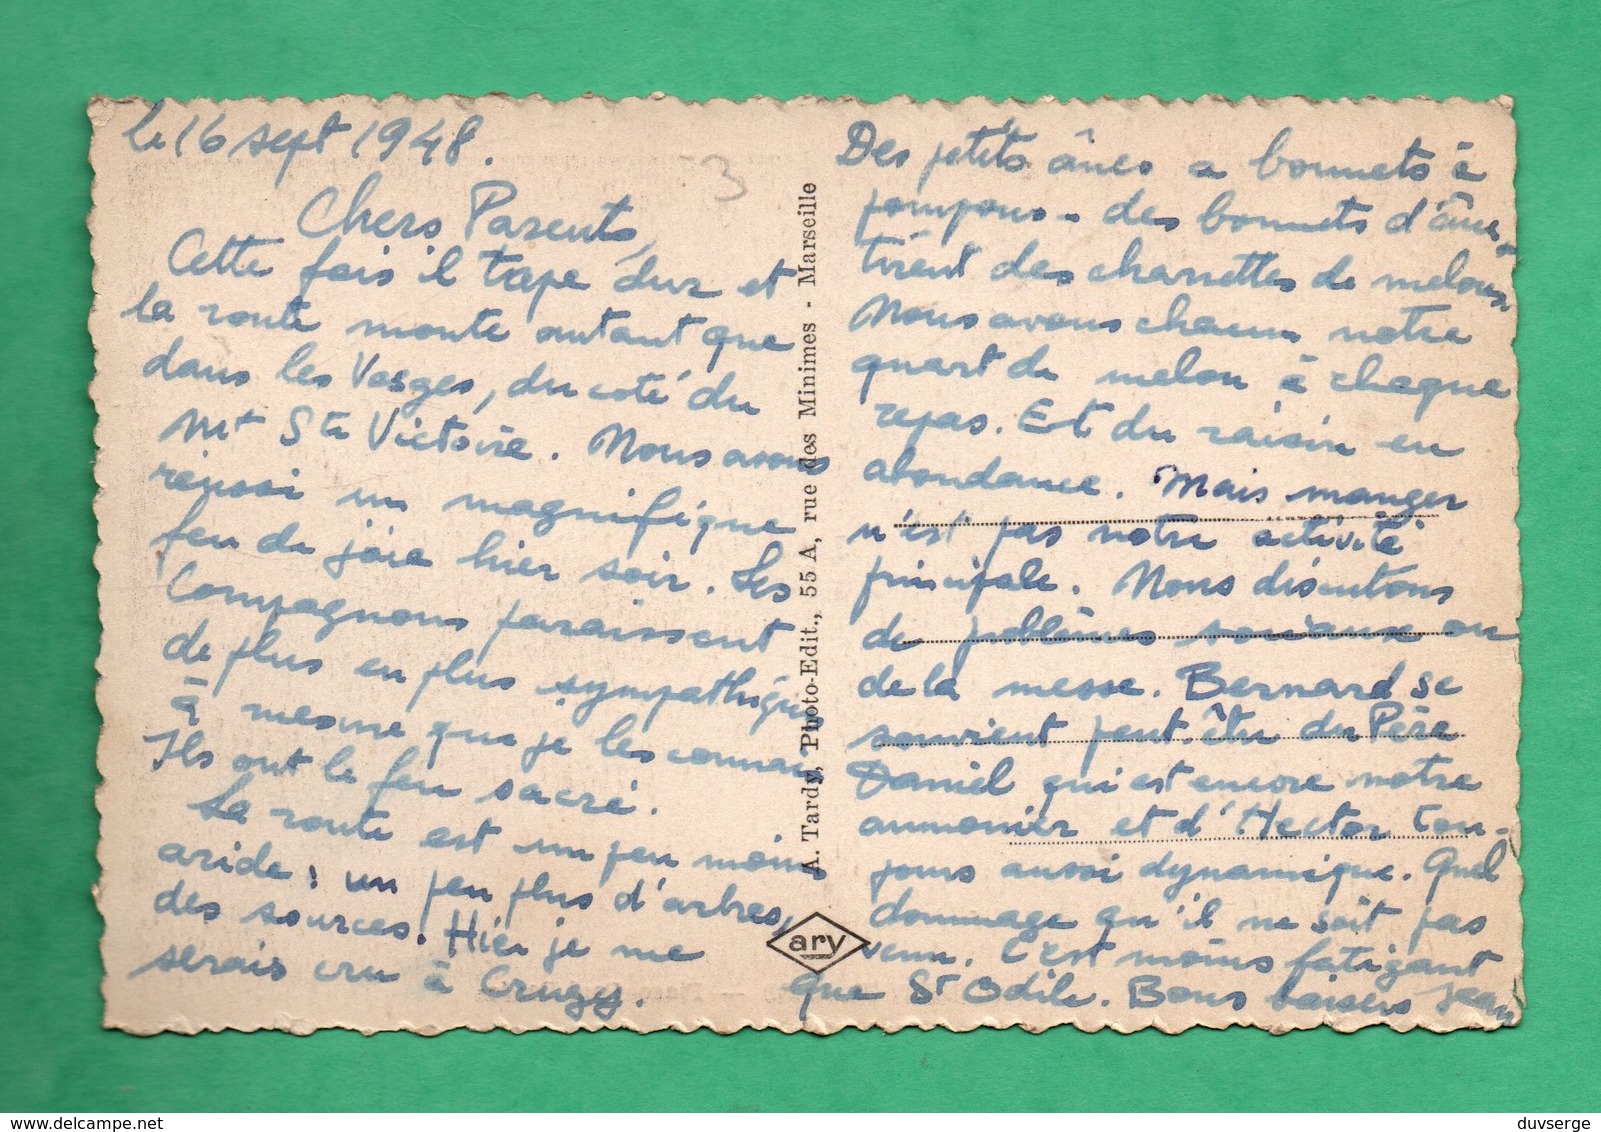 le 16 sept 1948.
Chers Parents,
Cette fois il tape dur et
la route monte autant que
dans les Vosges, du coté du
Mt Ste Victoire. Nous avons
réussi un magnifique
feu de joie hier soir. Les
Compagnons paraissent
de plus en plus sympathiques
à mesure que je les connais
Ils ont le feu sacré.
La route est un peu moins
aride : un peu plus d'arbres,
des sources. Hier je me
serais cru à Cruzy.
3
A. Tardy, Photo-Edit., 55 A, rue des Minimes - Marseille
ary
Des petits ânes a bonnets à
pompons - des bonnets d'ânes -
tirent des charrettes de melons
Nous avons chacun notre
quart de melon à chaque
repas. Et du raisin en
abondance. Mais manger
n'est pas notre activité
principale. Nous discutons
de problèmes sociaux ou
de la messe. Bernard se
souvient peut-être du Père
Daniel qui est encore notre
aumonier et d'Hector tou-
jours aussi dynamique. Quel
dommage qu'il ne soit pas
venu. C'est moins fatigant
que St Odile. Bons baisers Jean
delcampe.net
duvserge